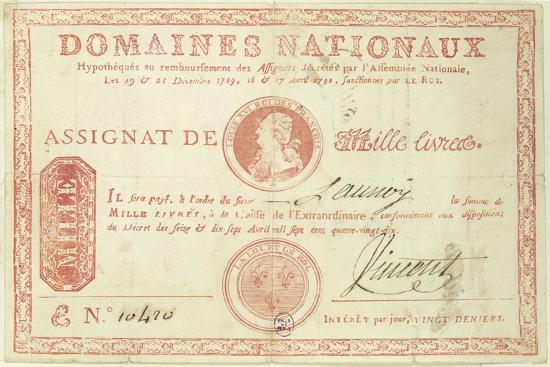 DOMAINES NATIONAUX
Hypothéqués au remboursement des Assignats décrétés par l'Assemblée Nationale,
Les 19 & 21 Décembre 1789, 16 & 17 Avril 1790, sanctionnés par LE ROI.
LOUIS XVI ROI DES FRANÇOIS
ASSIGNAT DE Mille livres.
MILLE
IL sera payé, à l'ordre du sieur Launoy la somme de
MILLE LIVRES, à la Caisse de l'Extraordinaire, conformément aux dispositions
du Décret des seize & dix-sept Avril mil sept cent quatre-vingt-dix.
Vincent
LA LOI ET LE ROI
N.° 10420
INTÉRÊT par jour, VINGT DENIERS.